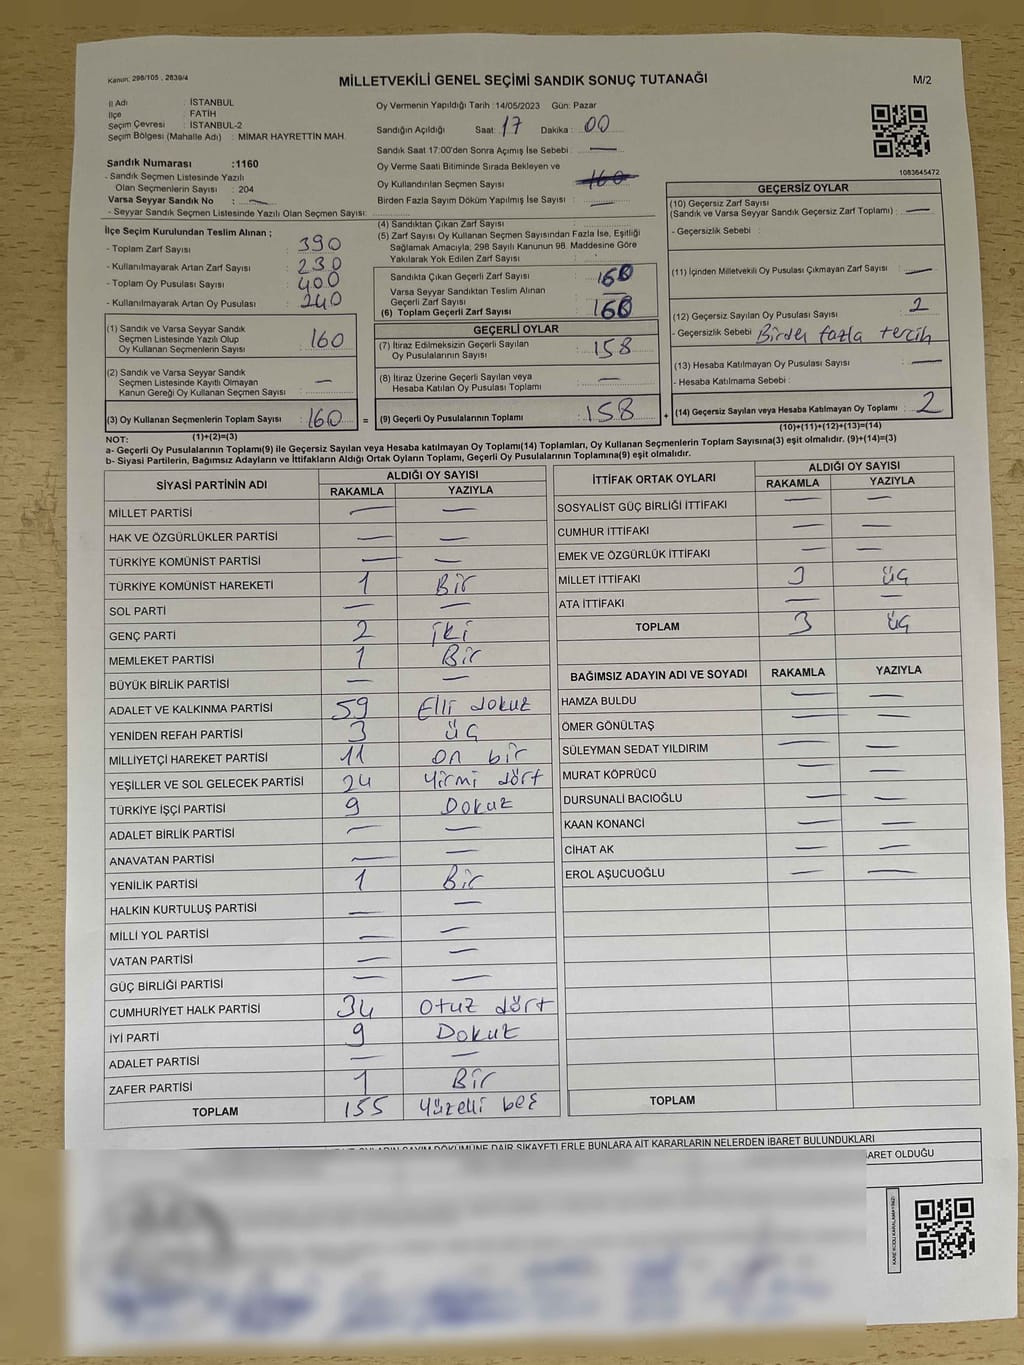 Kanun: 298/105 , 2839/4
MİLLETVEKİLİ GENEL SEÇİMİ SANDIK SONUÇ TUTANAĞI
M/2
İl Adı : İSTANBUL
İlçe : FATİH
Seçim Çevresi : İSTANBUL-2
Seçim Bölgesi (Mahalle Adı) : MİMAR HAYRETTİN MAH.
Sandık Numarası :1160
- Sandık Seçmen Listesinde Yazılı
Olan Seçmenlerin Sayısı : 204
Varsa Seyyar Sandık No : —
- Seyyar Sandık Seçmen Listesinde Yazılı Olan Seçmen Sayısı:
Oy Vermenin Yapıldığı Tarih :14/05/2023 Gün: Pazar
Sandığın Açıldığı Saat: 17 Dakika : 00
Sandık Saat 17:00'den Sonra Açımış İse Sebebi : —
Oy Verme Saati Bitiminde Sırada Bekleyen ve
Oy Kullandırılan Seçmen Sayısı : 160
Birden Fazla Sayım Döküm Yapılmış İse Sayısı : —
1083645472
İlçe Seçim Kurulundan Teslim Alınan ;
- Toplam Zarf Sayısı : 390
- Kullanılmayarak Artan Zarf Sayısı : 230
- Toplam Oy Pusulası Sayısı : 400
- Kullanılmayarak Artan Oy Pusulası : 240
(1) Sandık ve Varsa Seyyar Sandık
Seçmen Listesinde Yazılı Olup
Oy Kullanan Seçmenlerin Sayısı : 160
(2) Sandık ve Varsa Seyyar Sandık
Seçmen Listesinde Kayıtlı Olmayan
Kanun Gereği Oy Kullanan Seçmen Sayısı : —
(3) Oy Kullanan Seçmenlerin Toplam Sayısı : 160 =
(1)+(2)=(3)
(4) Sandıktan Çıkan Zarf Sayısı :
(5) Zarf Sayısı Oy Kullanan Seçmen Sayısından Fazla İse, Eşitliği
Sağlamak Amacıyla; 298 Sayılı Kanunun 98. Maddesine Göre
Yakılarak Yok Edilen Zarf Sayısı :
Sandıkta Çıkan Geçerli Zarf Sayısı : 160
Varsa Seyyar Sandıktan Teslim Alınan
Geçerli Zarf Sayısı :
(6) Toplam Geçerli Zarf Sayısı : 160
GEÇERLİ OYLAR
(7) İtiraz Edilmeksizin Geçerli Sayılan
Oy Pusulalarının Sayısı : 158
(8) İtiraz Üzerine Geçerli Sayılan veya
Hesaba Katılan Oy Pusulası Toplamı : —
(9) Geçerli Oy Pusulalarının Toplamı : 158 +
GEÇERSİZ OYLAR
(10) Geçersiz Zarf Sayısı
(Sandık ve Varsa Seyyar Sandık Geçersiz Zarf Toplamı) : —
- Geçersizlik Sebebi :
(11) İçinden Milletvekili Oy Pusulası Çıkmayan Zarf Sayısı : —
(12) Geçersiz Sayılan Oy Pusulası Sayısı : 2
- Geçersizlik Sebebi : Birden fazla tercih
(13) Hesaba Katılmayan Oy Pusulası Sayısı : —
- Hesaba Katılmama Sebebi :
(14) Geçersiz Sayılan veya Hesaba Katılmayan Oy Toplamı : 2
(10)+(11)+(12)+(13)=(14)
NOT:
a- Geçerli Oy Pusulalarının Toplamı(9) ile Geçersiz Sayılan veya Hesaba katılmayan Oy Toplamı(14) Toplamları, Oy Kullanan Seçmenlerin Toplam Sayısına(3) eşit olmalıdır. (9)+(14)=(3)
b- Siyasi Partilerin, Bağımsız Adayların ve İttifakların Aldığı Ortak Oyların Toplamı, Geçerli Oy Pusulalarının Toplamına(9) eşit olmalıdır.
SİYASİ PARTİNİN ADI ALDIĞI OY SAYISI
RAKAMLA YAZIYLA
MİLLET PARTİSİ — —
HAK VE ÖZGÜRLÜKLER PARTİSİ — —
TÜRKİYE KOMÜNİST PARTİSİ — —
TÜRKİYE KOMÜNİST HAREKETİ 1 Bir
SOL PARTİ — —
GENÇ PARTİ 2 iki
MEMLEKET PARTİSİ 1 Bir
BÜYÜK BİRLİK PARTİSİ — —
ADALET VE KALKINMA PARTİSİ 59 Elli dokuz
YENİDEN REFAH PARTİSİ 3 üç
MİLLİYETÇİ HAREKET PARTİSİ 11 on bir
YEŞİLLER VE SOL GELECEK PARTİSİ 24 Yirmi dört
TÜRKİYE İŞÇİ PARTİSİ 9 Dokuz
ADALET BİRLİK PARTİSİ — —
ANAVATAN PARTİSİ — —
YENİLİK PARTİSİ 1 Bir
HALKIN KURTULUŞ PARTİSİ — —
MİLLİ YOL PARTİSİ — —
VATAN PARTİSİ — —
GÜÇ BİRLİĞİ PARTİSİ — —
CUMHURİYET HALK PARTİSİ 34 Otuz dört
İYİ PARTİ 9 Dokuz
ADALET PARTİSİ — —
ZAFER PARTİSİ 1 Bir
TOPLAM 155 Yüzelli beş
İTTİFAK ORTAK OYLARI ALDIĞI OY SAYISI
RAKAMLA YAZIYLA
SOSYALİST GÜÇ BİRLİĞİ İTTİFAKI — —
CUMHUR İTTİFAKI — —
EMEK VE ÖZGÜRLÜK İTTİFAKI — —
MİLLET İTTİFAKI 3 üç
ATA İTTİFAKI — —
TOPLAM 3 üç
BAĞIMSIZ ADAYIN ADI VE SOYADI RAKAMLA YAZIYLA
HAMZA BULDU — —
ÖMER GÖNÜLTAŞ — —
SÜLEYMAN SEDAT YILDIRIM — —
MURAT KÖPRÜCÜ — —
DURSUNALİ BACIOĞLU — —
KAAN KONANCİ — —
CİHAT AK — —
EROL AŞUCUOĞLU — —
TOPLAM
OYLARIN SAYIM DÖKÜMÜNE DAİR ŞİKAYETLERLE BUNLARA AİT KARARLARIN NELERDEN İBARET BULUNDUKLARI
İBARET OLDUĞU